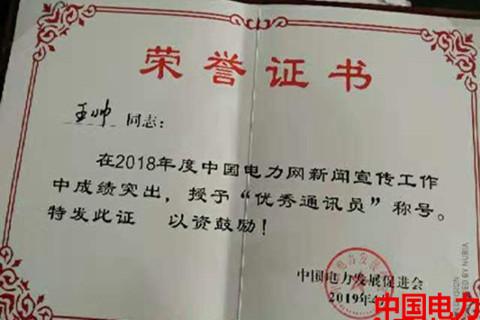 荣誉证书
王帅 同志：
在2018年度中国电力网新闻宣传工作
中成绩突出，授予“优秀通讯员”称号。
特发此证 以资鼓励！
中国电力发展促进会
2019年4
中国电力
BY NUBIA